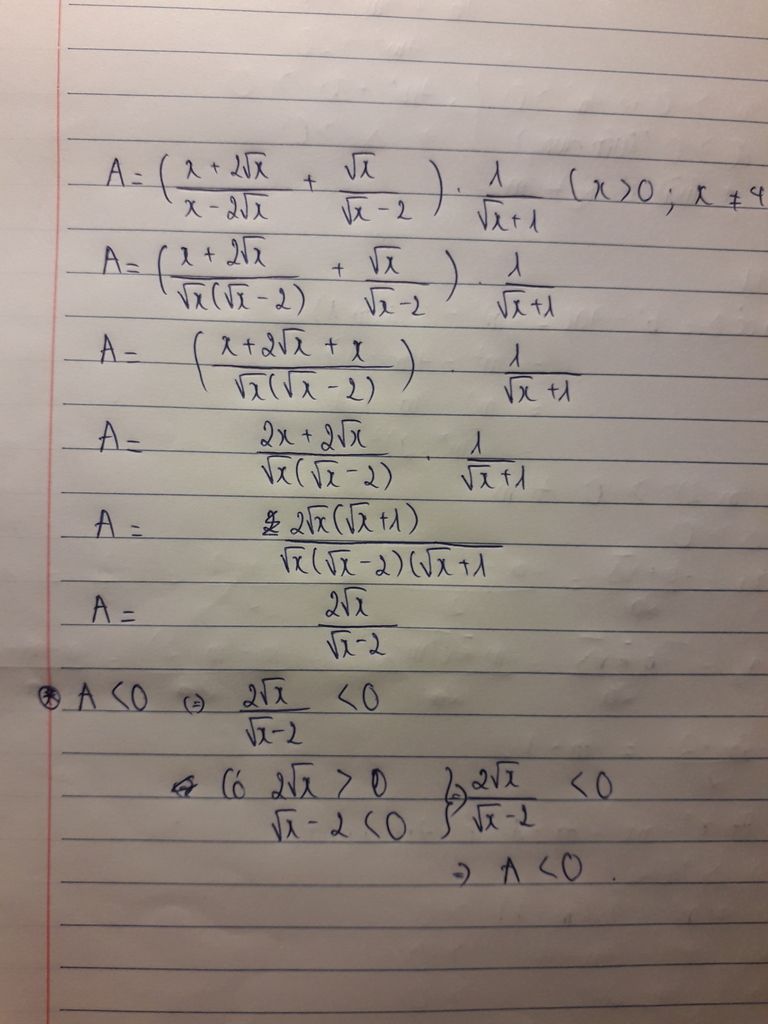 A = ( (x + 2√x)/(x - 2√x) + √x/(√x - 2) ) . 1/(√x + 1) (x > 0 ; x ≠ 4
A = ( (x + 2√x)/(√x(√x - 2)) + √x/(√x - 2) ) . 1/(√x + 1)
A = ( (x + 2√x + x)/(√x(√x - 2)) ) . 1/(√x + 1)
A = (2x + 2√x)/(√x(√x - 2)) . 1/(√x + 1)
A = 2√x(√x + 1)/(√x(√x - 2)(√x + 1
A = 2√x/(√x - 2)
* A < 0 (=) 2√x/(√x - 2) < 0
Có 2√x > 0 } => 2√x/(√x - 2) < 0
√x - 2 < 0
=> A < 0 .